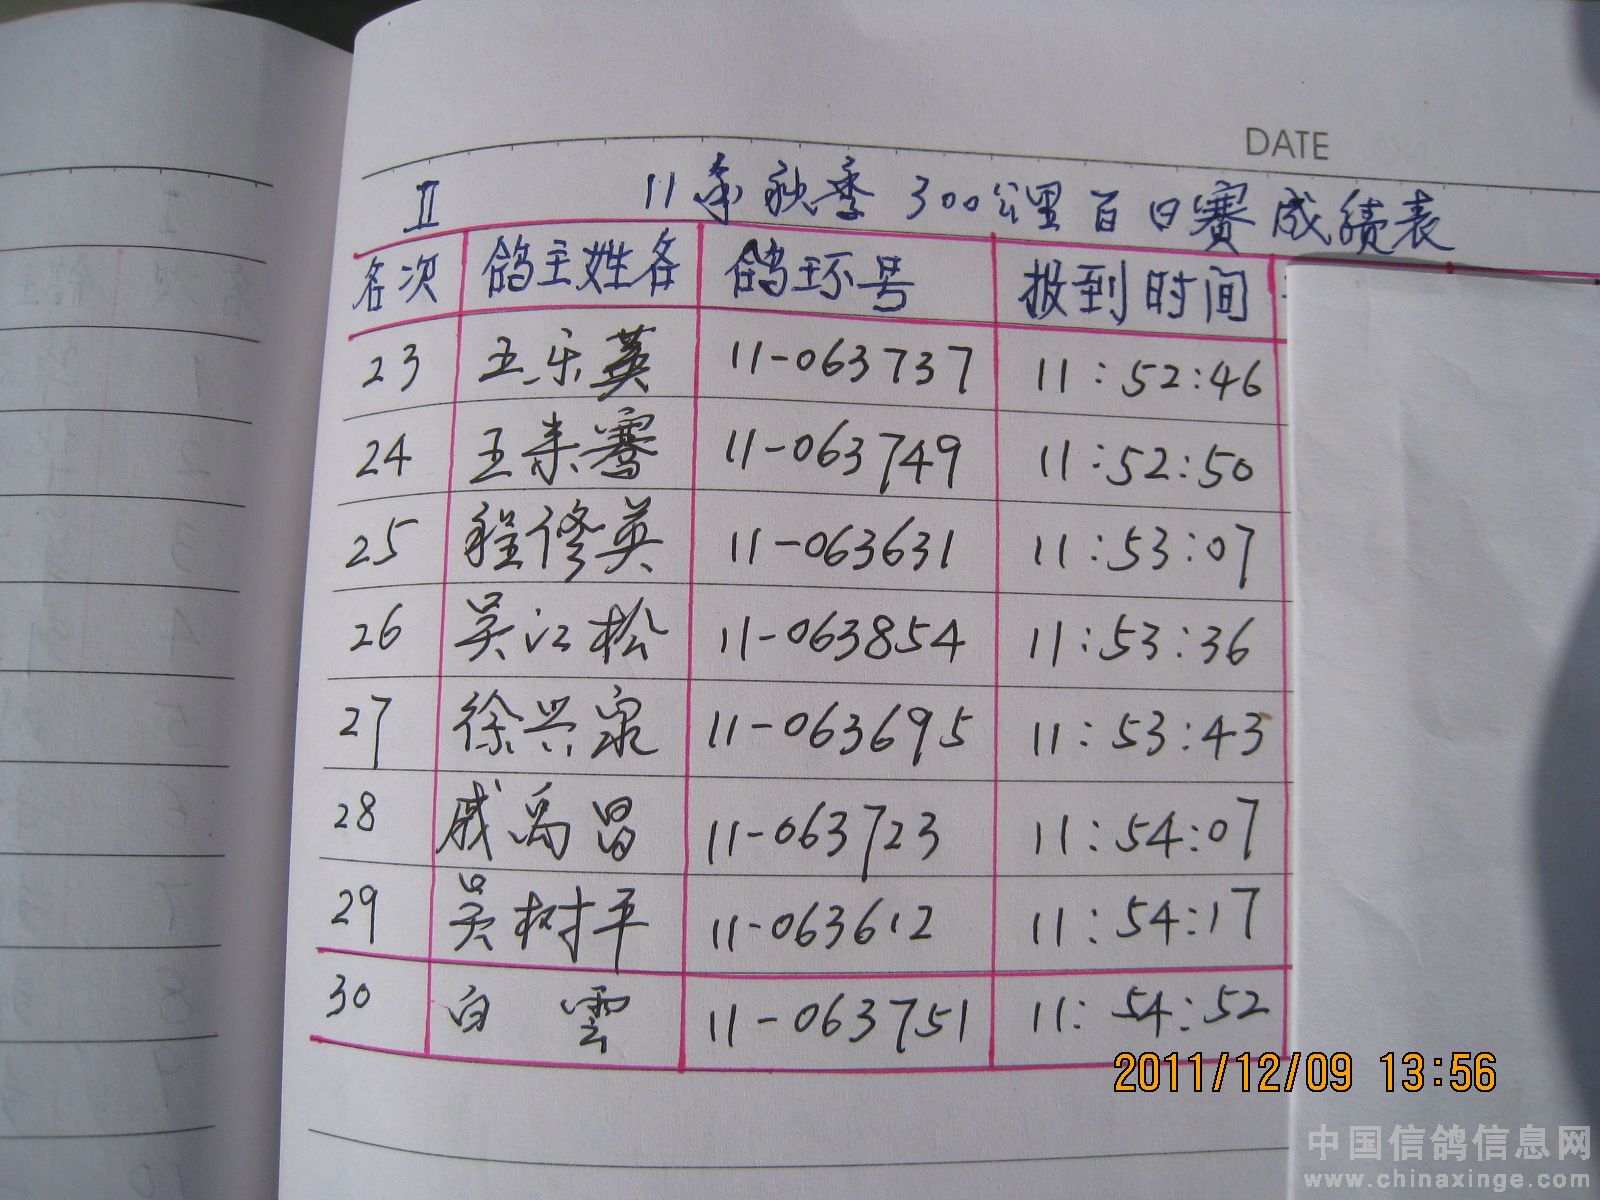 DATE
II 11年秋季300公里百日赛成绩表
名次 鸽主姓名 鸽环号 报到时间
23 王乐英 11-063737 11:52:46
24 王来骞 11-063749 11:52:50
25 程修英 11-063631 11:53:07
26 吴江松 11-063854 11:53:36
27 徐兴泉 11-063695 11:53:43
28 戚禹昌 11-063723 11:54:07
29 吴树平 11-063612 11:54:17
30 白雲 11-063751 11:54:52
2011/12/09 13:56
中国信鸽信息网
www.chinaxinge.com